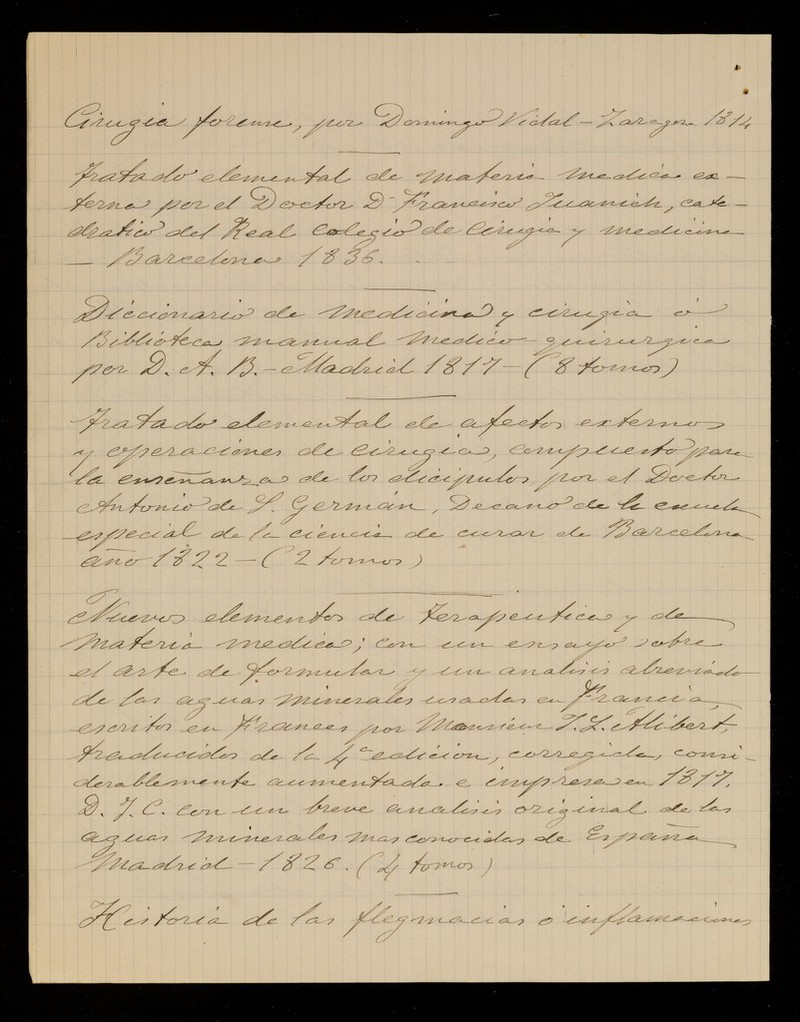 Cirugia forense, por Domingo Vidal - Zaragoza 1814
Tratado elemental de materia medica ex-
terna por el Doctor D. Francisco Juanich, cate-
dratico del Real Colegio de Cirugia y medicina
- Barcelona 1836.
Diccionario de medicina y cirugia ó
Biblioteca manual medico-quirurgica
por D. A. B. - Madrid 1817 - (8 tomos)
Tratado elemental de afectos externos
y operaciones de cirugia, compuesto para
la enseñanza de los dicipulos por el Doctor
Antonio de S. Germán, Decano de la escuela
especial de la ciencia de curar de Barcelona
año 1822 - (2 tomos)
Nuevos elementos de terapeutica y de
materia medica; con un ensayo sobre
el arte de formular y un analisis abreviado
de las aguas minerales usadas en Francia,
escritos en Frances por Monsieur J. L. Alibert,
traducidos de la 4ª edicion, corregida, consi-
derablemente aumentada e impresa en 1817.
D. J. C. con un breve analisis original de las
aguas minerales mas conocidas de España
Madrid - 1826. (4 tomos)
Historia de las flegmacias ó inflamaciones